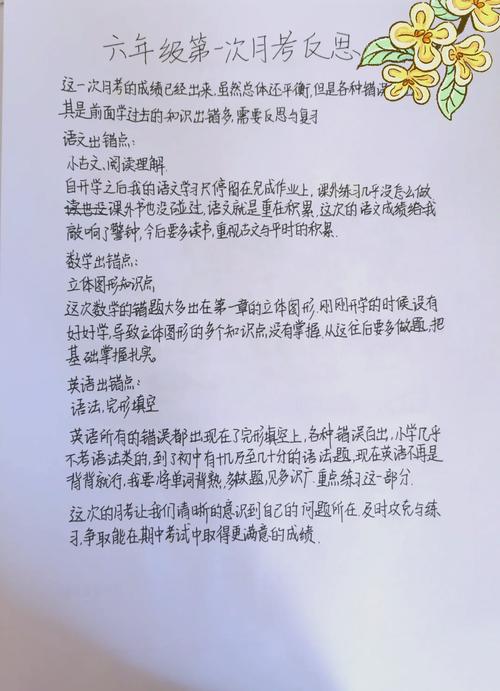 六年级第一次月考反思
这一次月考的成绩已经出来,虽然总体还平衡,但是各种错误
其是前面学过去的知识出错多,需要反思与复习
语文出错点:
小古文、阅读理解.
自开学之后我的语文学习只停留在完成作业上,课外练习几乎没怎么做
读也没课外书也没碰过,语文就是重在积累,这次的语文成绩给我
敲响了警钟,今后要多读书,重视古文与平时的积累.
数学出错点:
立体图形知识点
这次数学的错题大多出在第一章的立体图形.刚刚开学的时候没有
好好学,导致立体图形的多个知识点没有掌握.从这往后要多做题,把
基础掌握扎实。
英语出错点:
语法,完形填空
英语所有的错误都出现在了完形填空上,各种错误百出,小学几乎
不考语法类的,到了初中有十几乃至几十分的语法题,现在英语不再是
背背就行,我要将单词背熟,多做题,见多识广.重点练习这一部分.
这次的月考让我们清晰的意识到自己的问题所在.及时攻克与练
习,争取能在期中考试中取得更满意的成绩.